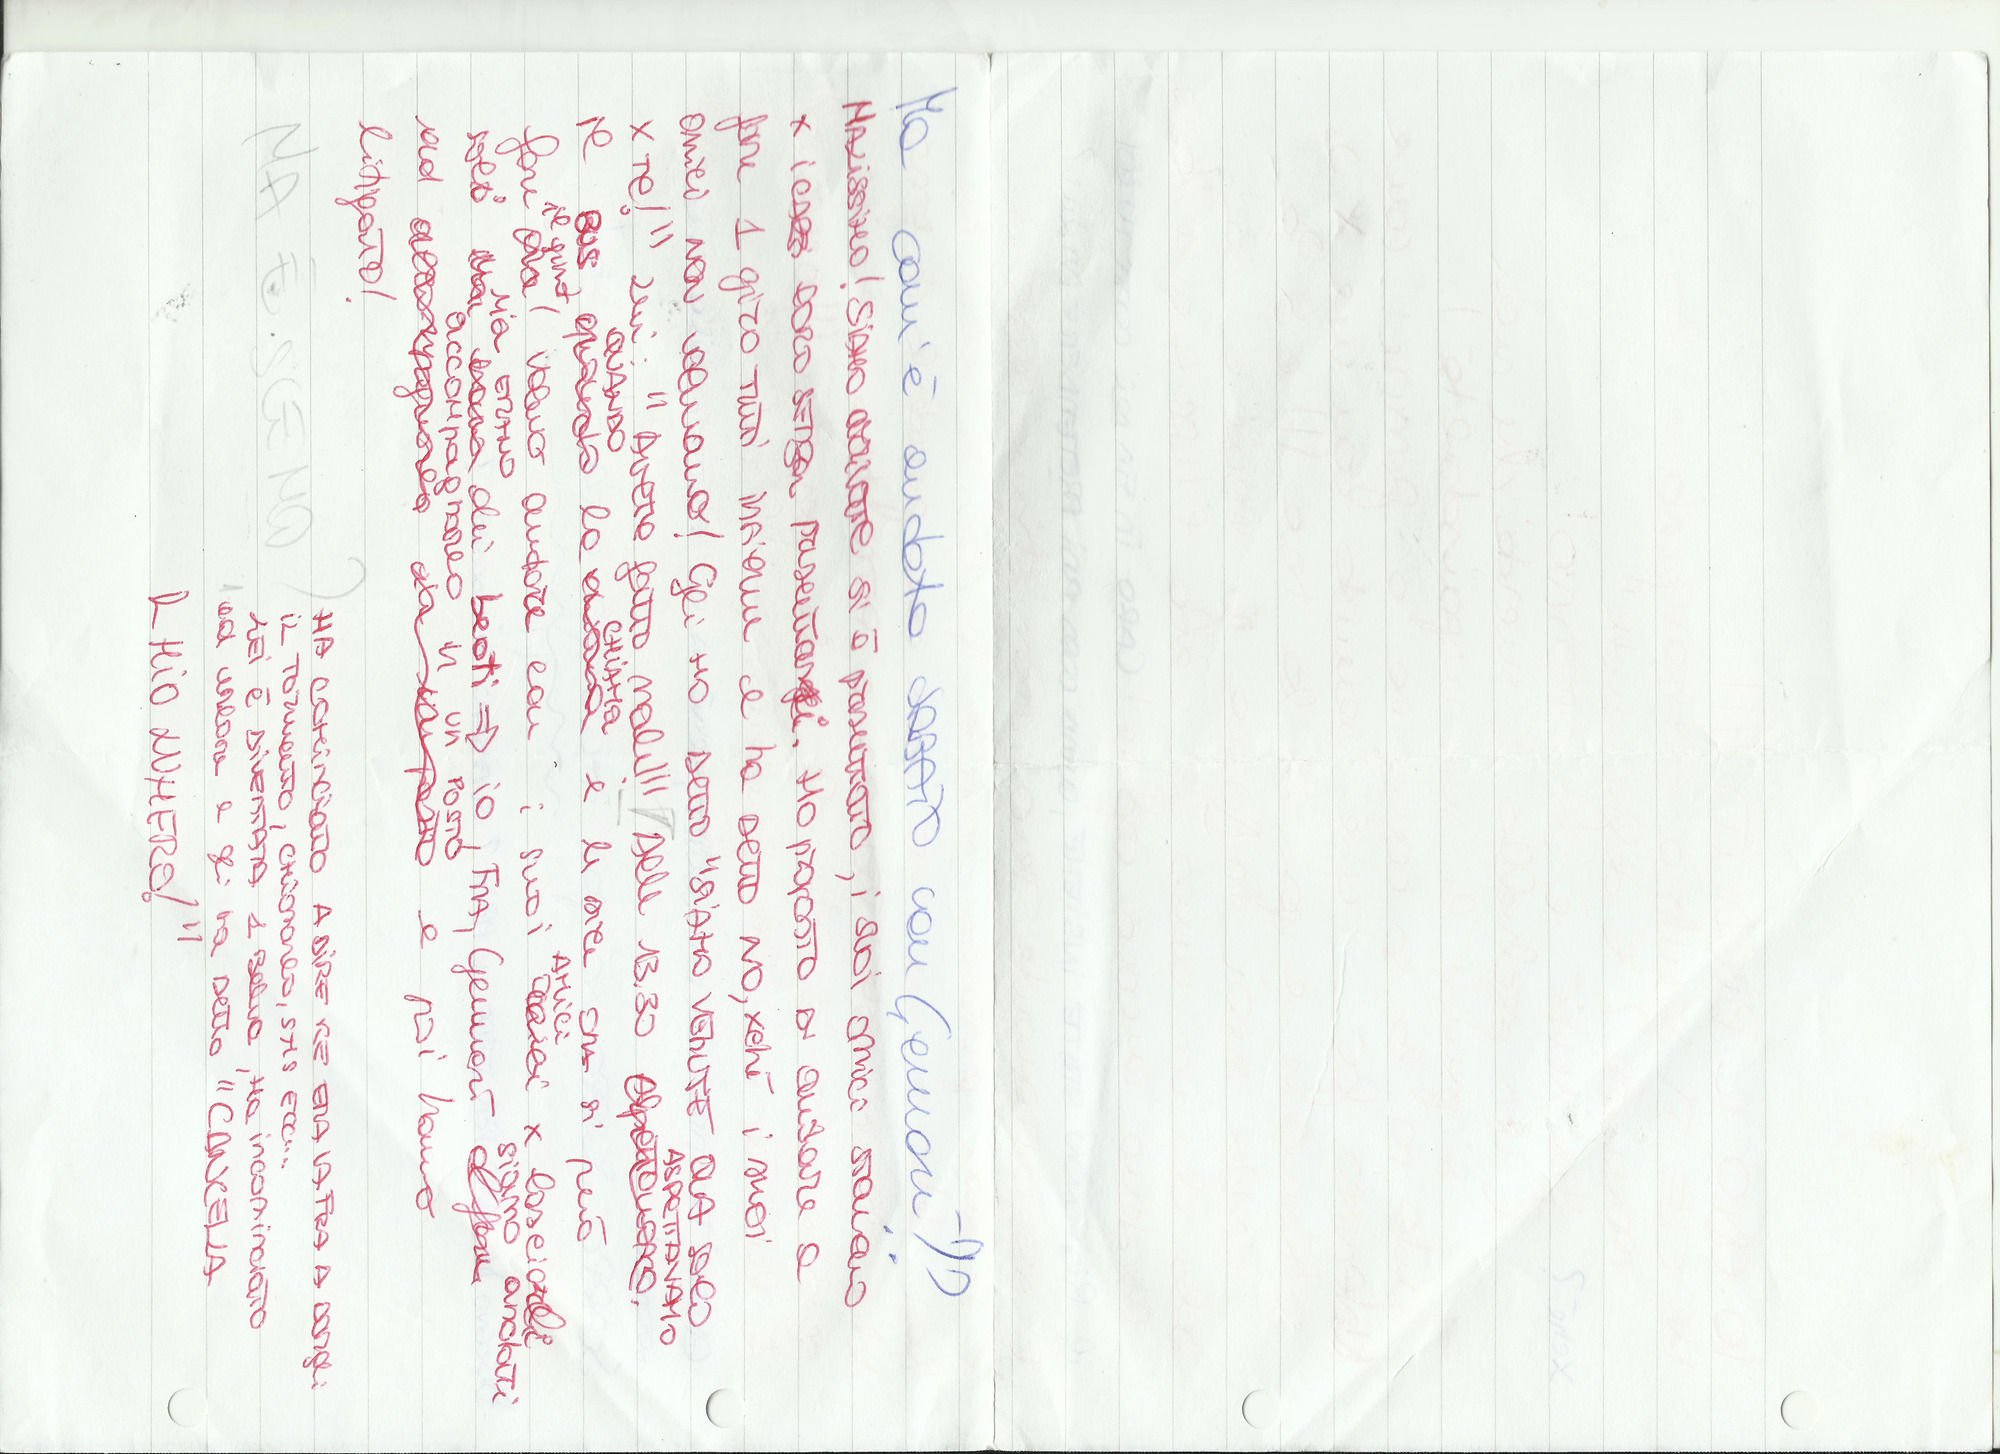 Ma com'è andato sabato con Gemoni?!
Malissimo! Siamo arrivate si è presentato, i suoi amici stavano
x i cazzi loro senza presentargli. Ho proposto di andare a
fare 1 giro tutti insieme e ha detto no, xchè i suoi
amici non venivano! Gli ho detto "siamo venute qua solo
x te!" lui: "avete fatto male!!!" Dalle 13.30 aspettavamo
il bus quando la chiama e le dice che si può
quando chiama
fare qua! Volevo andare con i suoi amici x lasciarli
soli mia erano dei beati => io, Fra, Gemoni siamo andati
mia accompagnarlo in un posto e poi hanno
litigato!
MA È SCEMO?
Ha cominciato a dire ke era la Fra a dargli
il tormento, chiamarlo, sms ecc...
Lei è diventata 1 , ha incominciato
ad urlare e gli ha detto "cancella
il mio numero!"